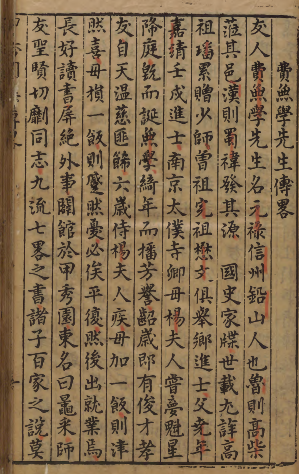 費無學先生傳畧
友人費無學先生名元祿信州鉛山人也魯則高柴
蒞其邑漢則蜀禕發其源　國史家牒世載尤詳高
祖瑄累贈少師曾祖完祖懋文俱舉鄉進士父堯年
嘉靖壬戌進士南京太僕寺卿母楊夫人嘗夢魁星
降庭既而誕無學綺年而播芳譽齠歲即有俊才孝
友自天溫慈匪飾六歲侍楊夫人疾母加一飯則津
然喜母損一飯則蹙然憂必俟平復然後出就業焉
長好讀書屏絕外事闢館於甲秀園東名曰鼂采師
友聖賢切劘同志九流七畧之書諸子百家之說莫